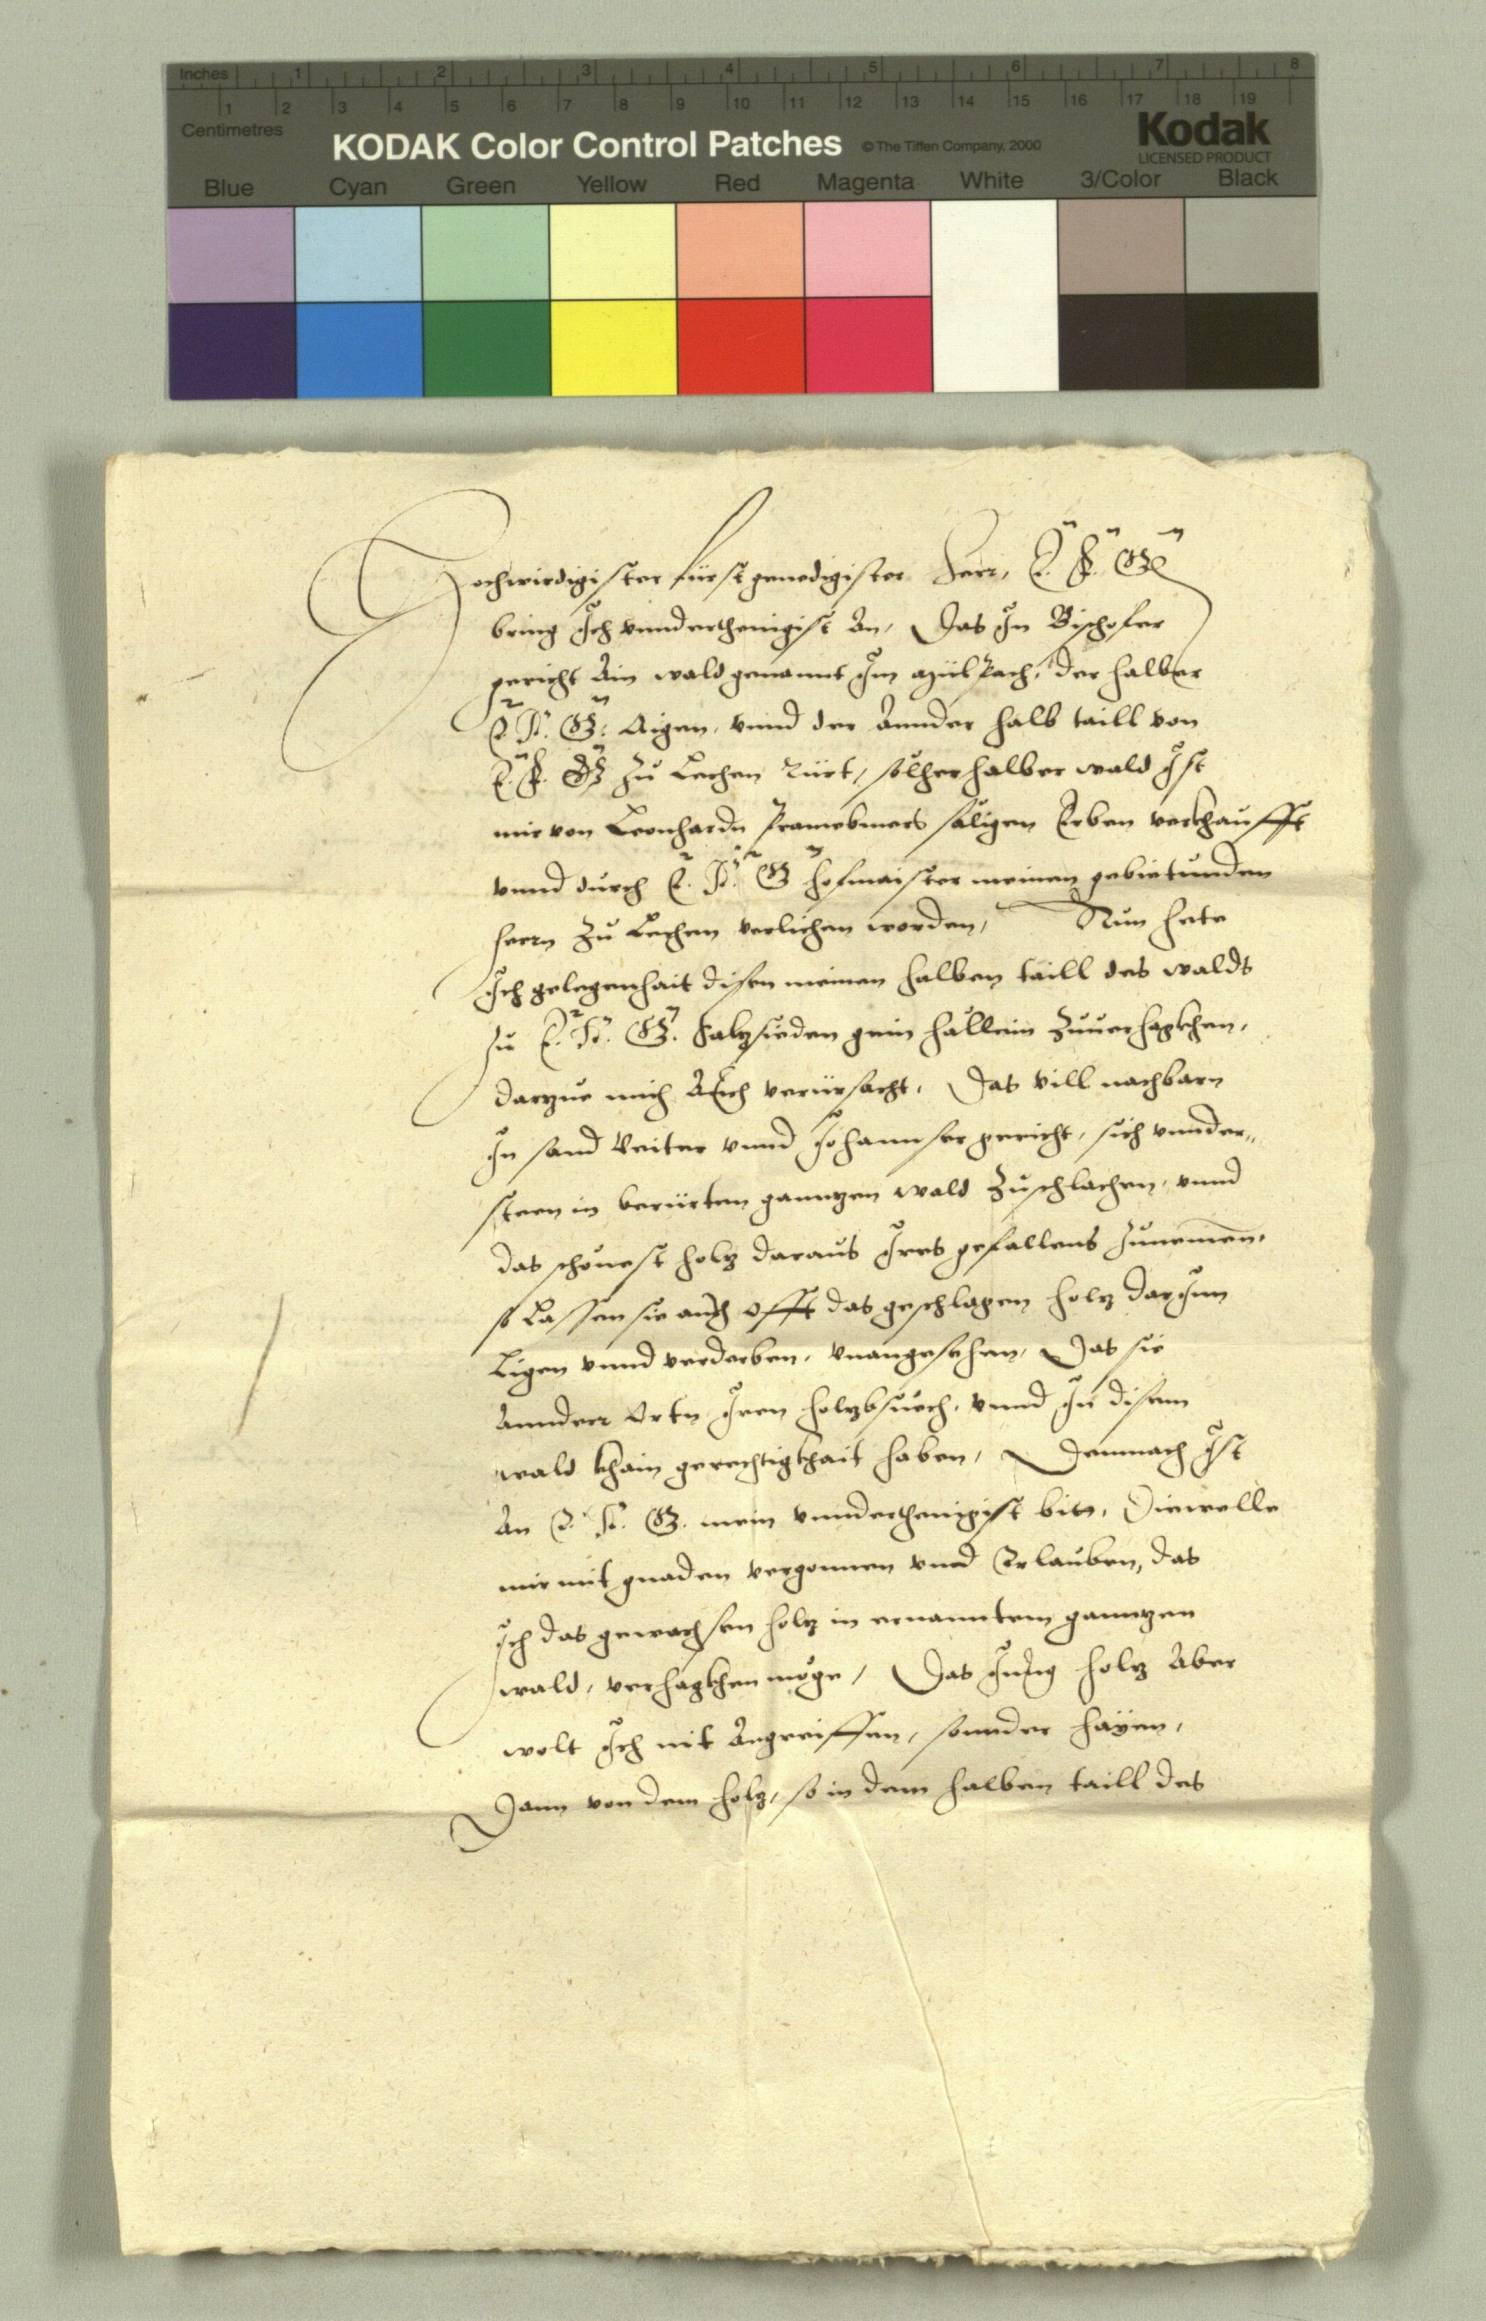 Inches 1 2 3 4 5 6 7 8
1 2 3 4 5 6 7 8 9 10 11 12 13 14 15 16 17 18 19
Centimetres
KODAK Color Control Patches © The Tiffen Company, 2000 Kodak
LICENSED PRODUCT
Blue Cyan Green Yellow Red Magenta White 3/Color Black
Hochwirdigister fürst genedigister Herr, E. F. G.
bring Ich vnnderthenigist An, Das In Bischofer
gericht Ain wald genannt Im der halber
E. F. G. Aigen, vnnd der Annder halb taill von
E. F. G. zu Lechen Rürt, sölher halber wald Ist
mir von Leonhardn säligen Erben verkhaufft
vnnd durch E. F. G. hofmaister meinen gebietunden
herrn zu Lechen verlichen worden, Nun hete
Ich gelegenhait disen meinen halben taill des walds
zu E. F. G. Salzsieden gein Hallein zuuerhagkhen,
darzue mich Auch verürsacht, Das vill nachbarn
In sand Veiter vnnd Johannser gericht, sich vnnder„
steen in berürten ganntzen wald zuschlachen, vnnd
das schönest holtz daraus Ires gefallens zunemen,
so Lassen sie auch offt das geschlagen holtz darJnn
Ligen vnnd verderben, vnangesehen, Das sie
Annderr Orten Iren holtzbsuech, vnnd In disem
wald khain gerechtigkhait haben, Demnach Ist
An E. F. G. mein vnnderthenigist bitn, Die welle
mir mit gnaden vergonnen vnd Erlauben, das
Ich das gewachsen holtz in ernanntem ganntzen
wald, verhagkhen möge, Das Jung holtz Aber
wolt Ich nit Angreiffen, sonnder hayen,
Dann von dem holtz, so in dem halben taill des